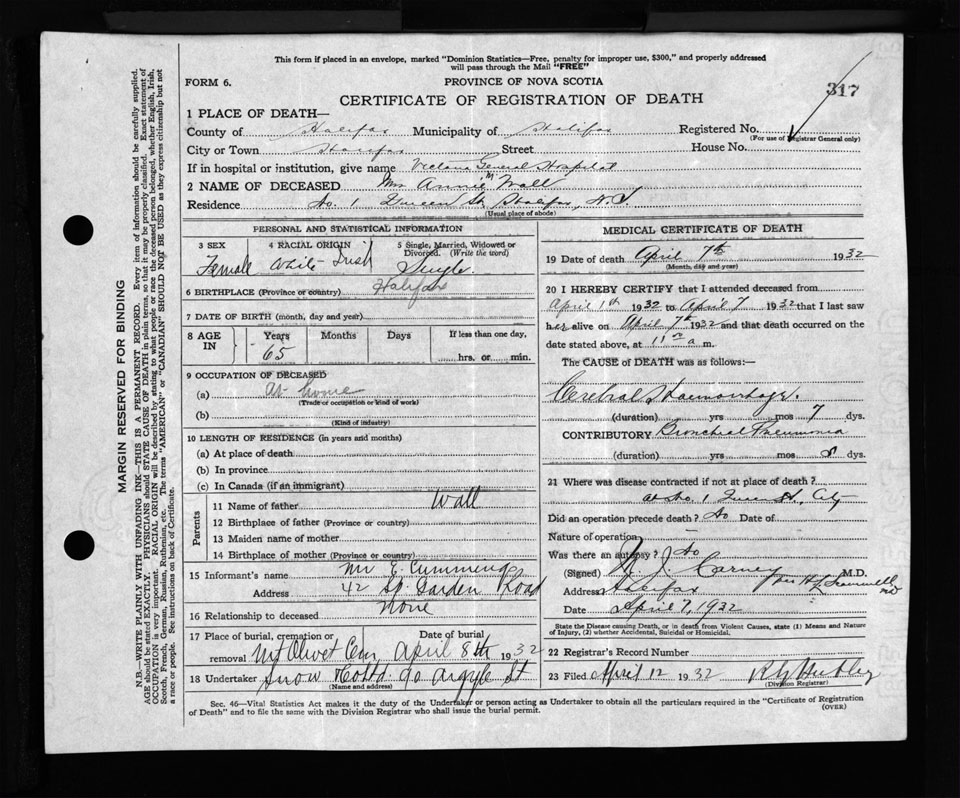 This form if placed in an envelope, marked "Dominion Statistics—Free, penalty for improper use, $300," and properly addressed
will pass through the Mail "FREE"
FORM 6.
PROVINCE OF NOVA SCOTIA
317
CERTIFICATE OF REGISTRATION OF DEATH
1 PLACE OF DEATH—
County of Halifax Municipality of Halifax Registered No.
(For use of Registrar General only)
City or Town Halifax Street House No.
If in hospital or institution, give name Victoria General Hospital
2 NAME OF DECEASED Annie M Wall
Residence No. 1 Queen St. Halifax, N.S.
(Usual place of abode)
PERSONAL AND STATISTICAL INFORMATION
3 SEX 4 RACIAL ORIGIN 5 Single, Married, Widowed or Divorced. (Write the word)
Female White-Irish Single
6 BIRTHPLACE (Province or country) Halifax
7 DATE OF BIRTH (month, day and year)
8 AGE IN Years Months Days If less than one day,
65 hrs. or min.
9 OCCUPATION OF DECEASED
(a) At home
(Trade or occupation or kind of work)
(b)
(Kind of industry)
10 LENGTH OF RESIDENCE (in years and months)
(a) At place of death
(b) In province
(c) In Canada (if an immigrant)
Parents
11 Name of father Wall
12 Birthplace of father (Province or country)
13 Maiden name of mother
14 Birthplace of mother (Province or country)
15 Informant's name Mr E. Cummings
Address 42 Sp. Garden Road
16 Relationship to deceased None
17 Place of burial, cremation or removal Mt Olivet Cem Date of burial April 8th 1932
18 Undertaker Snow Co Ltd 90 Argyle St
(Name and address)
MEDICAL CERTIFICATE OF DEATH
19 Date of death April 7th 1932
(Month, day and year)
20 I HEREBY CERTIFY that I attended deceased from
April 1st 1932 to April 7 1932 that I last saw
her alive on April 7th 1932 and that death occurred on the
date stated above, at 11 a m.
The CAUSE OF DEATH was as follows:—
Cerebral Haemorrhage.
(duration) yrs mos 7 dys.
CONTRIBUTORY Bronchial Pneumonia
(duration) yrs mos 8 dys.
21 Where was disease contracted if not at place of death?
at No. 1 Queen St, City
Did an operation precede death? No Date of
Nature of operation
Was there an autopsy? No
(Signed) J. Carney M.D.
Address Halifax
Date April 7, 1932
State the Disease causing Death, or in death from Violent Causes, state (1) Means and Nature
of Injury, (2) whether Accidental, Suicidal or Homicidal.
22 Registrar's Record Number
23 Filed April 12 1932
(Division Registrar)
Sec. 46—Vital Statistics Act makes it the duty of the Undertaker or person acting as Undertaker to obtain all the particulars required in the "Certificate of Registration
of Death" and to file the same with the Division Registrar who shall issue the burial permit. (OVER)
MARGIN RESERVED FOR BINDING
N.B.—WRITE PLAINLY WITH UNFADING INK—THIS IS A PERMANENT RECORD. Every item of information should be carefully supplied.
AGE should be stated EXACTLY. PHYSICIANS should STATE CAUSE OF DEATH in plain terms, so that it may be properly classified. Exact statement of
OCCUPATION is very important. RACIAL ORIGIN will be described by stating to what people or race the deceased person belonged, whether English, Irish,
Scotch, French, German, Russian, Ruthenian, etc. The terms "AMERICAN" or "CANADIAN" SHOULD NOT BE USED as they express citizenship but not
a race or people. See instructions on back of Certificate.